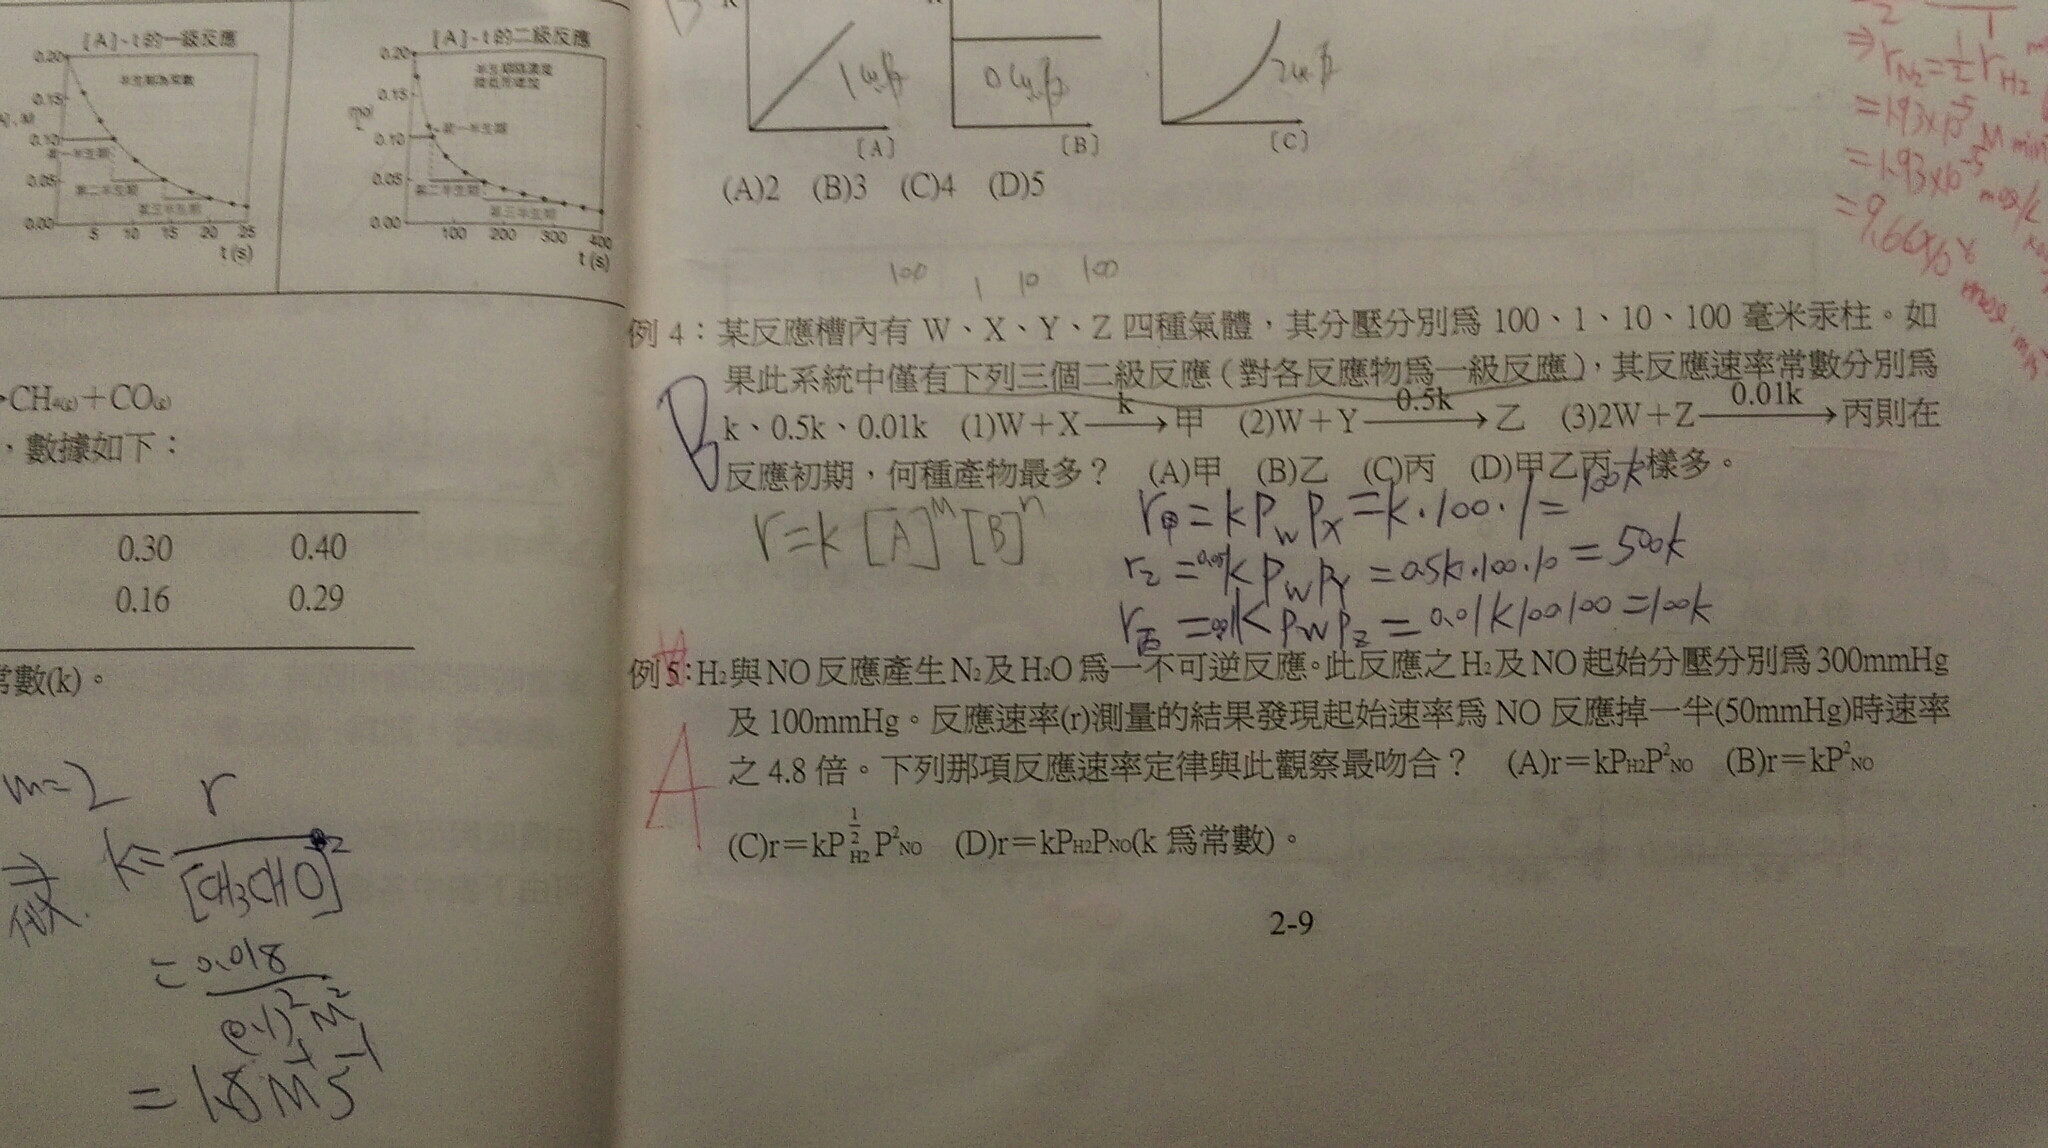 [A]-t的一級反應
半生期為常數
0.20
0.15
0.10
0.05
0.00
第一半生期
第二半生期
第三半生期
5 10 15 20 25
t(s)
[A]-t的二級反應
0.20
0.15
0.10
0.05
0.00
第一半生期
第二半生期
第三半生期
100 200 300 400
t(s)
CH4(g)+CO(g)
，數據如下：
0.30 0.40
0.16 0.29
常數(k)。
m=2 r
⇒ k=
[CH3CHO]²
=0.018
(0.1)² M²
=1.8 M⁻¹S⁻¹
[A] [B] [C]
(A)2 (B)3 (C)4 (D)5
100 1 10 100
例 4：某反應槽內有 W、X、Y、Z 四種氣體，其分壓分別爲 100、1、10、100 毫米汞柱。如
果此系統中僅有下列三個二級反應（對各反應物爲一級反應），其反應速率常數分別爲
k、0.5k、0.01k (1)W＋X —k→ 甲 (2)W＋Y —0.5k→ 乙 (3)2W＋Z —0.01k→ 丙則在
B
反應初期，何種產物最多？ (A)甲 (B)乙 (C)丙 (D)甲乙丙一樣多。
r=k[A]^m[B]^n
r甲=kPwPx=k·100·1=100k
=0.5k·100·10=500k
r丙=0.01kPwPz=0.01k100100=100k
例 5：H2與NO反應產生N2及H2O爲一不可逆反應。此反應之H2及NO起始分壓分別爲300mmHg
及100mmHg。反應速率(r)測量的結果發現起始速率爲 NO 反應掉一半(50mmHg)時速率
A
之 4.8 倍。下列那項反應速率定律與此觀察最吻合？ (A)r＝kPH2P²NO (B)r＝kP²NO
(C)r＝kP½H2P²NO (D)r＝kPH2PNO(k 爲常數)。
2-9
⇒rN2=½rH2
=1.93×10⁻⁵ M min
=1.93×10⁻⁵